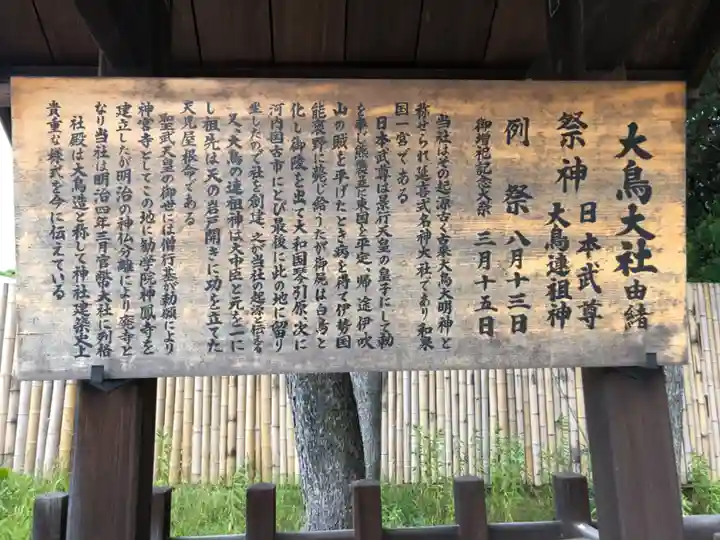 大鳥大社由緒
祭神 日本武尊
大鳥連祖神
例祭 八月十三日
御増祀記念大祭 三月十五日
当社はその起源古く古来大鳥大明神と
称せられ延喜式名神大社であり和泉
国一宮である
日本武尊は景行天皇の皇子にして勅
を奉じ熊襲並に東国を平定、帰途伊吹
山の賊を平げたとき病を得て伊勢国
能褒野に薨じ給うたが御屍は白鳥と
化し御陵を出て大和国琴引原、次に
河内国古市にとび最後に此の地に留り
坐したので社を創建、之が当社の起源と伝える
又、大鳥の連祖神は大中臣と元を一に
し祖先は天の岩戸開きに功を立てた
天児屋根命である
聖武天皇の御世には僧行基が勅願により
神宮寺としてこの地に勧学院神鳳寺を
建立したが明治の神仏分離により廃寺と
なり当社は明治四年五月官幣大社に列格
社殿は大鳥造と称して神社建築史上
貴重な様式を今に伝えている